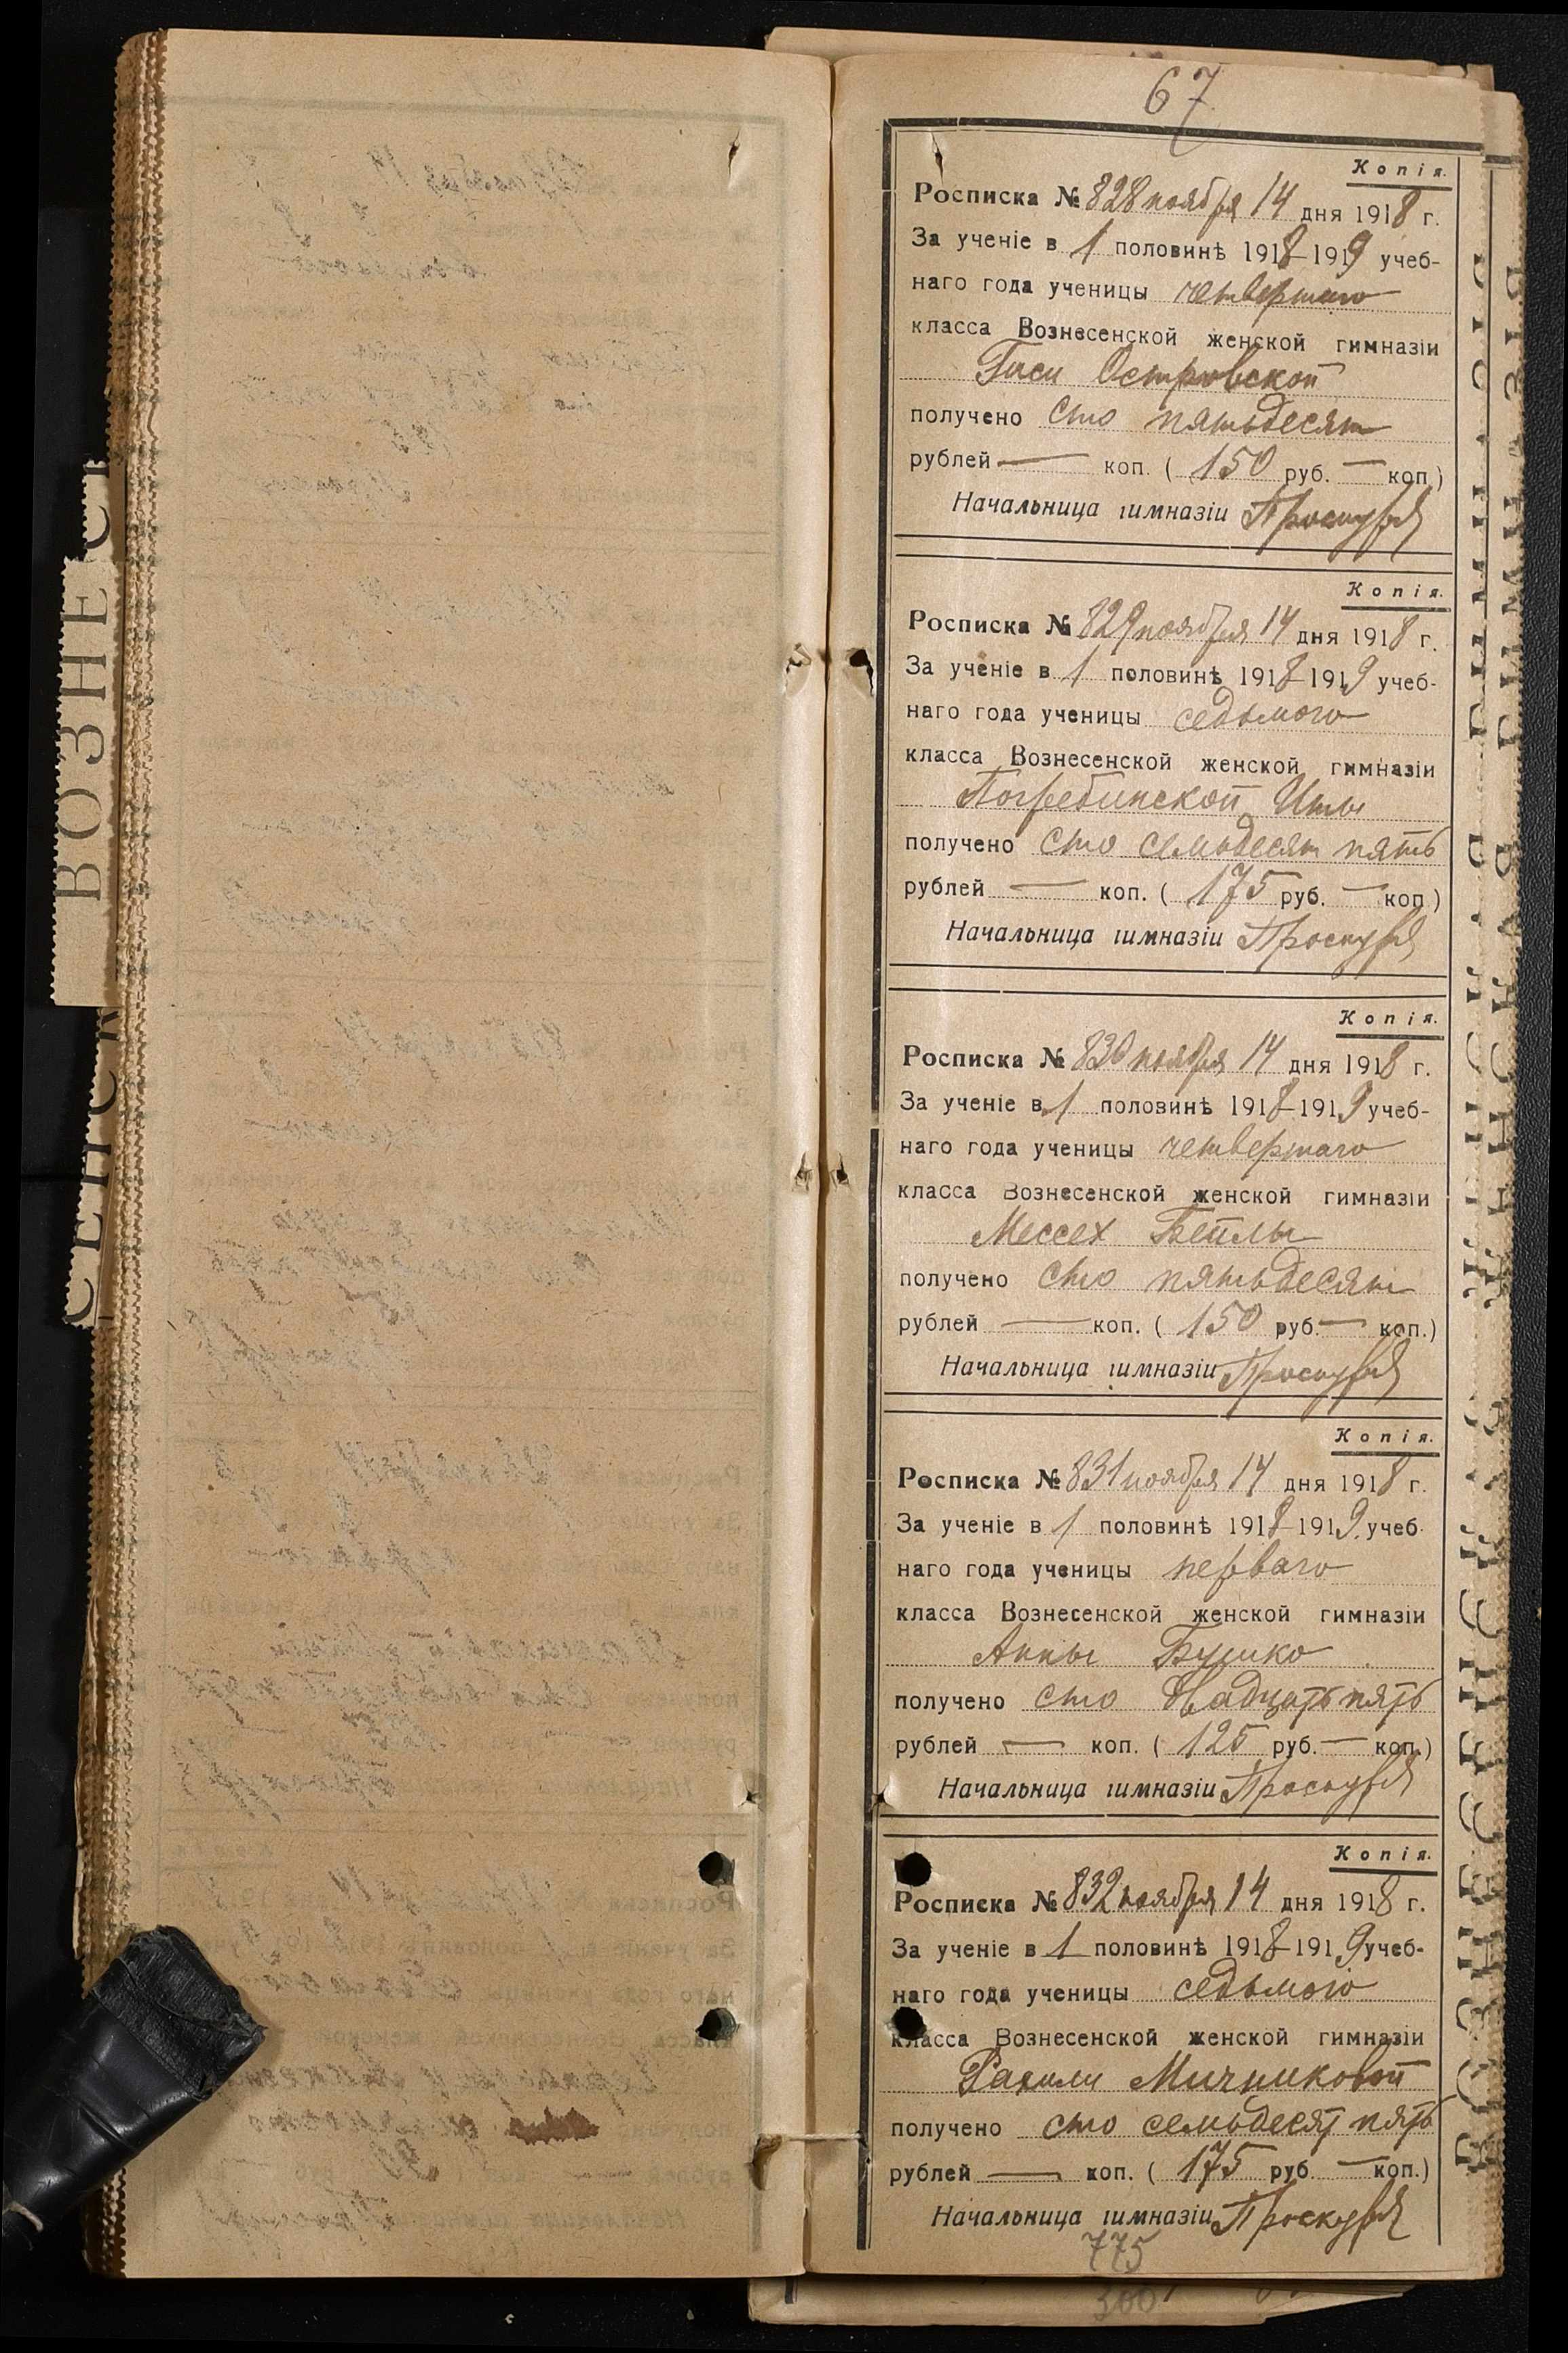 67
Копія.
Росписка № 828 ноября 14 дня 1918 г.
За ученіе в 1 половинѣ 1918–1919 учеб-
наго года ученицы четвертаго
класса Вознесенской женской гимназіи
Гиси Островской
получено сто пятьдесят
рублей — коп. ( 150 руб. — коп.)
Начальница гимназіи Проскуря
Копія.
Росписка № 829 ноября 14 дня 1918 г.
За ученіе в 1 половинѣ 1918–1919 учеб-
наго года ученицы седьмого
класса Вознесенской женской гимназіи
Погребинской Иты
получено сто семьдесят пять
рублей — коп. ( 175 руб. — коп.)
Начальница гимназіи Проскуря
Копія.
Росписка № 830 ноября 14 дня 1918 г.
За ученіе в 1 половинѣ 1918–1919 учеб-
наго года ученицы четвертаго
класса Вознесенской женской гимназіи
Мессех Бейлы
получено сто пятьдесят
рублей — коп. ( 150 руб. — коп.)
Начальница гимназіи Проскуря
Копія.
Росписка № 831 ноября 14 дня 1918 г.
За ученіе в 1 половинѣ 1918–1919 учеб-
наго года ученицы перваго
класса Вознесенской женской гимназіи
Анны Бушко
получено сто двадцать пять
рублей — коп. ( 125 руб. — коп.)
Начальница гимназіи Проскуря
Копія.
Росписка № 832 ноября 14 дня 1918 г.
За ученіе в 1 половинѣ 1918–1919 учеб-
наго года ученицы седьмого
класса Вознесенской женской гимназіи
Рахили Мичниковой
получено сто семьдесят пять
рублей — коп. ( 175 руб. — коп.)
Начальница гимназіи Проскуря
775
300
ВОЗНЕС